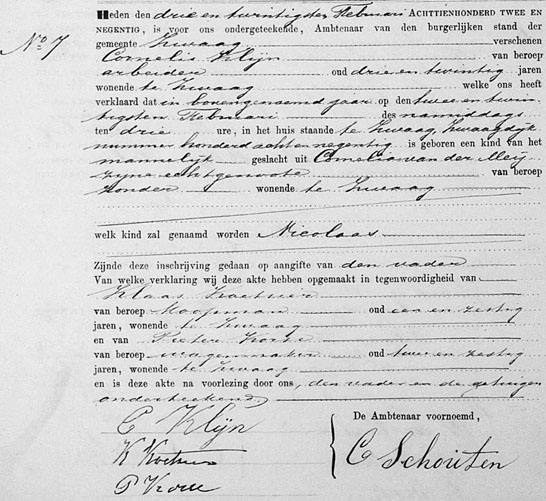 Nº 7
Heden den drie en twintigsten Februari ACHTTIENHONDERD TWEE EN
NEGENTIG, is voor ons ondergeteekende, Ambtenaar van den burgerlijken stand der
gemeente Zwaag verschenen
Cornelis Klijn van beroep
arbeider oud drie en twintig jaren
wonende te Zwaag welke ons heeft
verklaard dat in bovengenoemd jaar op den twee en twin-
tigsten Februari des namiddags
ten drie ure, in het huis staande te Zwaag, Zwaagdijk
nummer honderd acht en negentig is geboren een kind van het
mannelijk geslacht uit Cornelia van der Meij
zijne echtgenoote van beroep
zonder wonende te Zwaag
welk kind zal genaamd worden Nicolaas
Zijnde deze inschrijving gedaan op aangifte van den vader
Van welke verklaring wij deze akte hebben opgemaakt in tegenwoordigheid van
Klaas
van beroep Koopman oud een en zestig
jaren, wonende te Zwaag
en van Pieter
van beroep wagenmaker oud twee en zestig
jaren, wonende te Zwaag
en is deze akte na voorlezing door ons, den vader en de getuigen
onderteekend.
C Klijn
De Ambtenaar voornoemd,
K
C Schouten
P